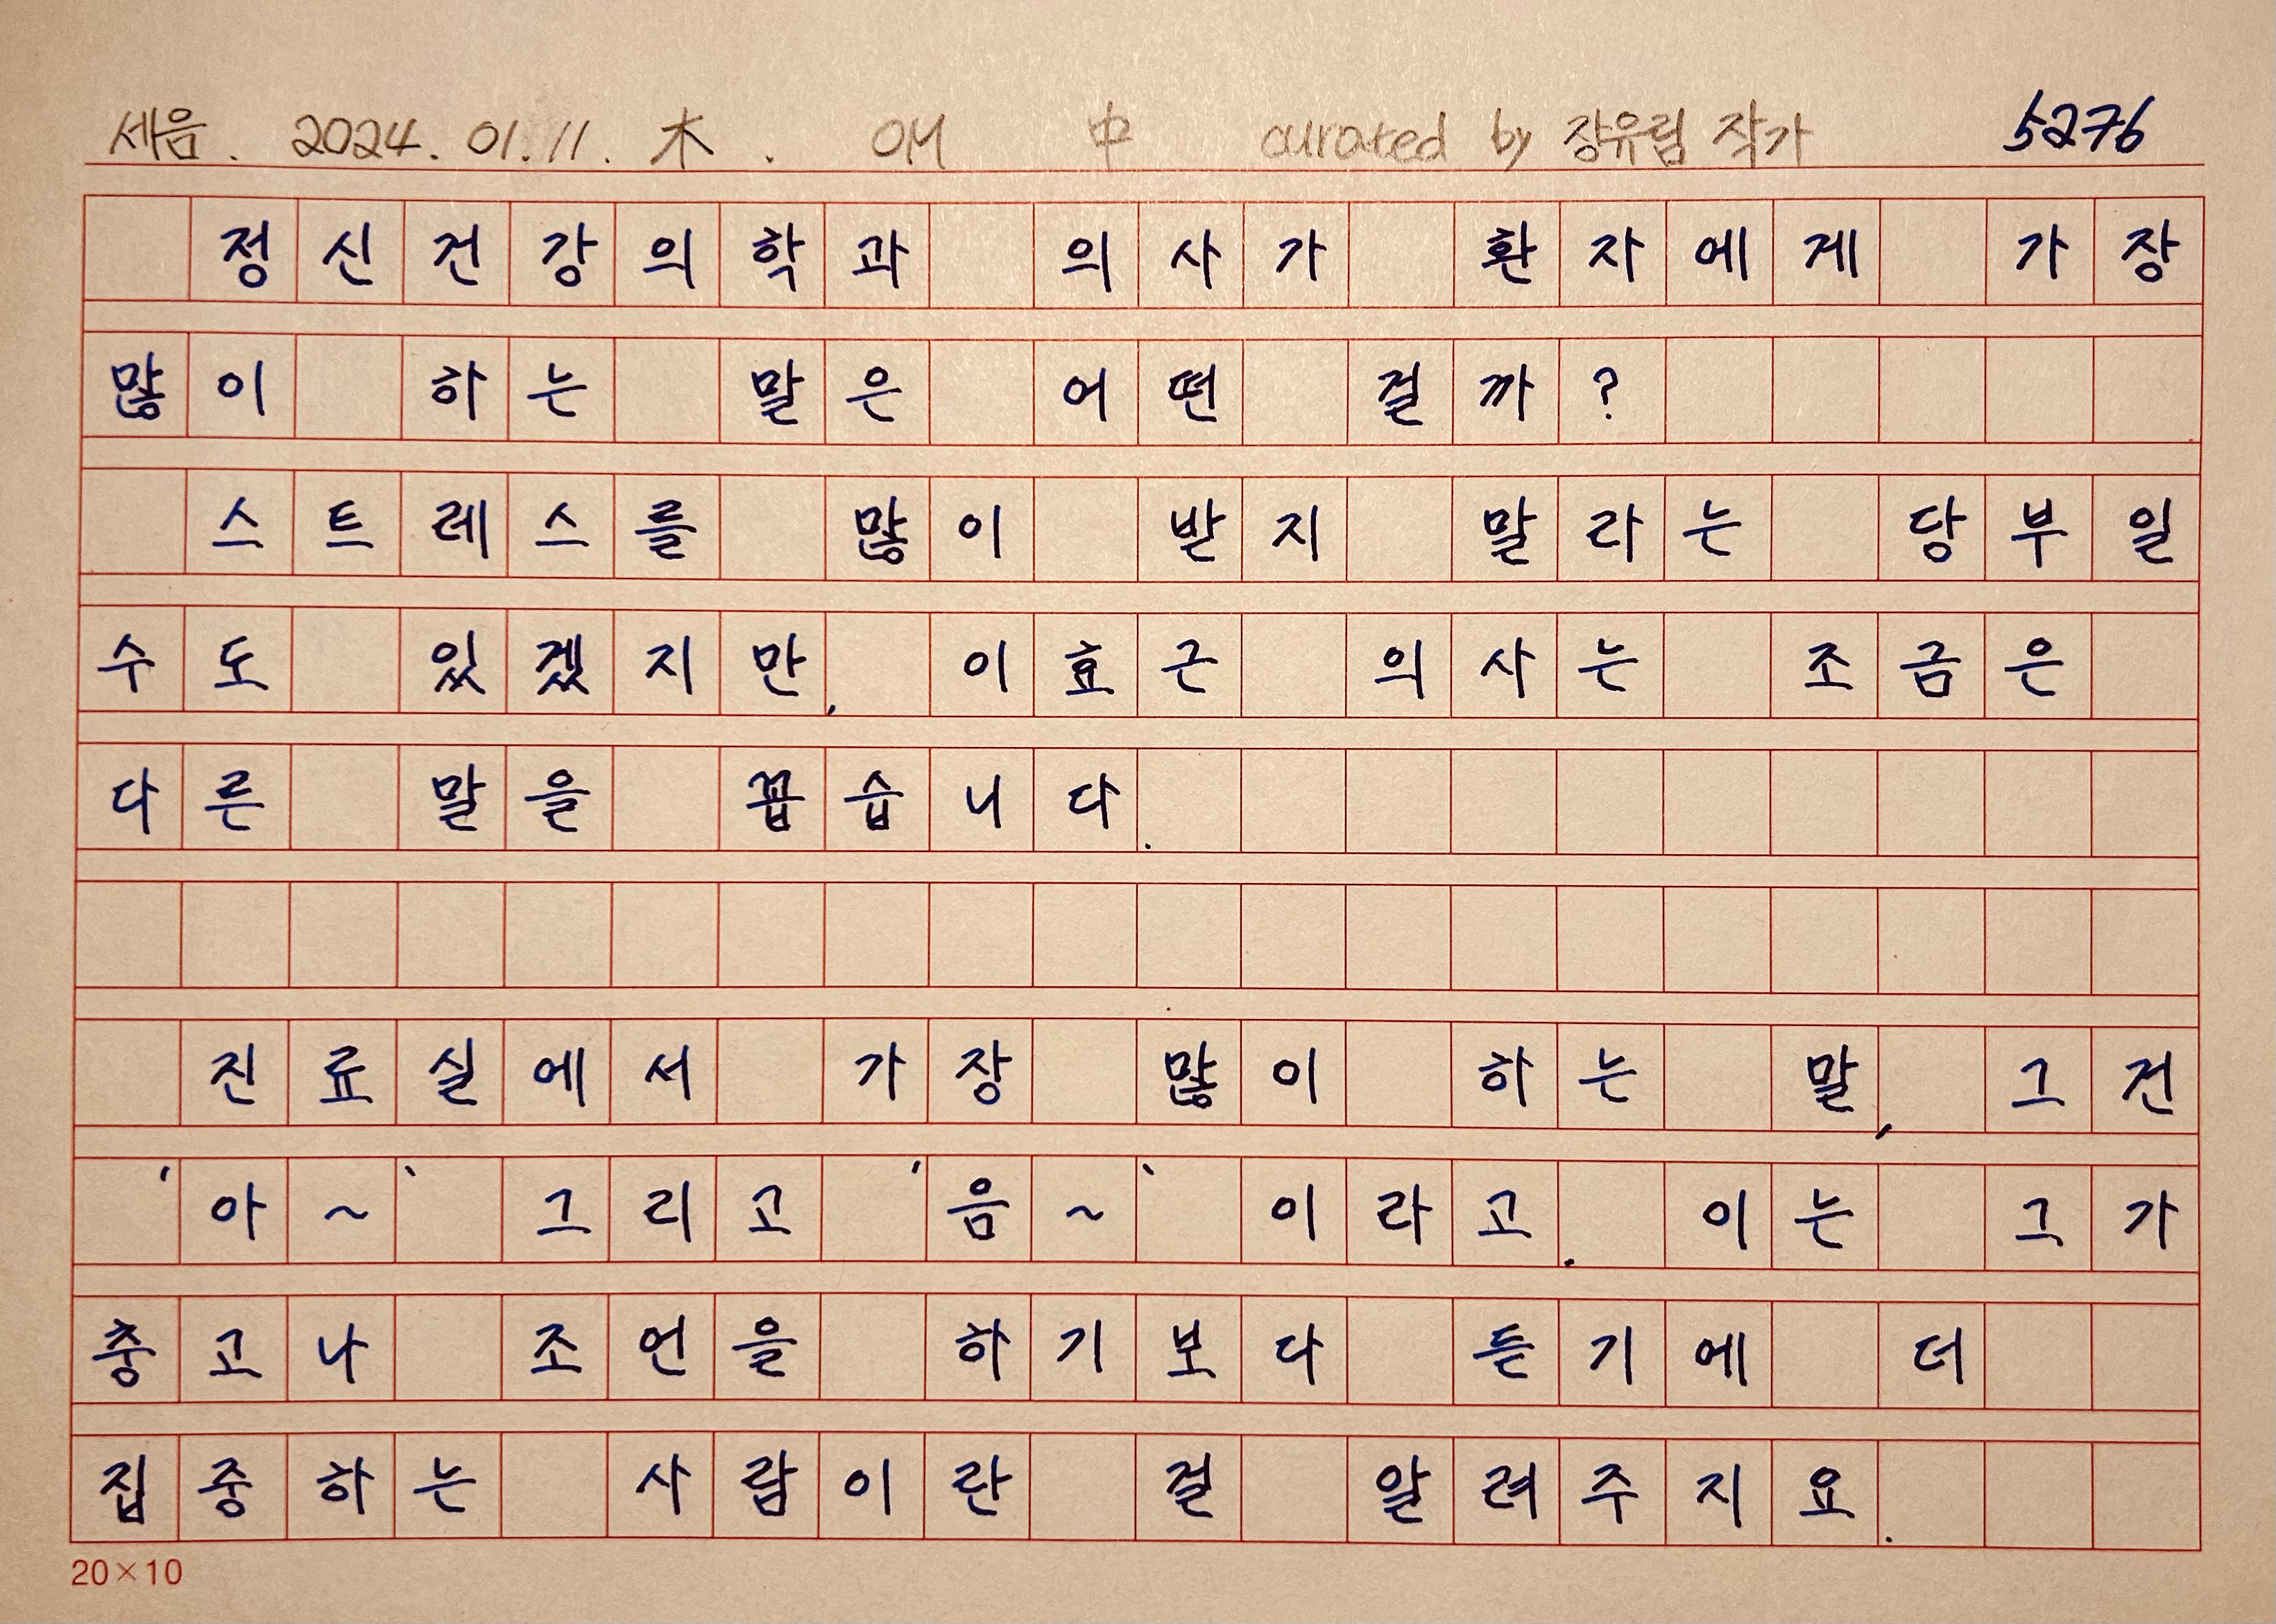 세음. 2024.01.11. 木. OM 中 curated by 장유림 작가 5276
정신건강의학과 의사가 환자에게 가장
많이 하는 말은 어떤 걸까?
스트레스를 많이 받지 말라는 당부일
수도 있겠지만, 이효근 의사는 조금은
다른 말을 꼽습니다.
진료실에서 가장 많이 하는 말, 그건
'아~' 그리고 '음~' 이라고. 이는 그가
충고나 조언을 하기보다 듣기에 더
집중하는 사람이란 걸 알려주지요.
20×10